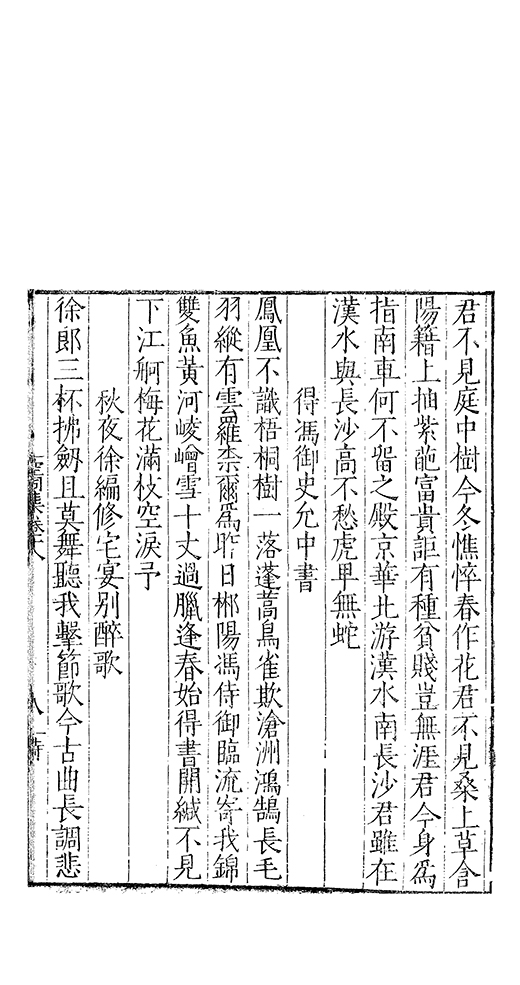 君不見庭中樹今冬憔悴春作花君不見桑上草含
陽籍上抽紫葩富貴詎有種貧賤豈無涯君今身爲
指南車何不畱之殿京華北游漢水南長沙君雖在
漢水與長沙高不愁虎卑無蛇
得馮御史允中書
鳳凰不識梧桐樹一落蓬蒿鳥雀欺滄洲鴻鵠長毛
羽縱有雲羅柰爾爲昨日郴陽馮侍御臨流寄我錦
雙魚黃河崚嶒雪十丈過臘逢春始得書開緘不見
下江舸梅花滿枝空淚予
秋夜徐編修宅宴别醉歌
徐郎三杯拂劒且莫舞聽我擊節歌今古曲長調悲
空同集卷十八
八